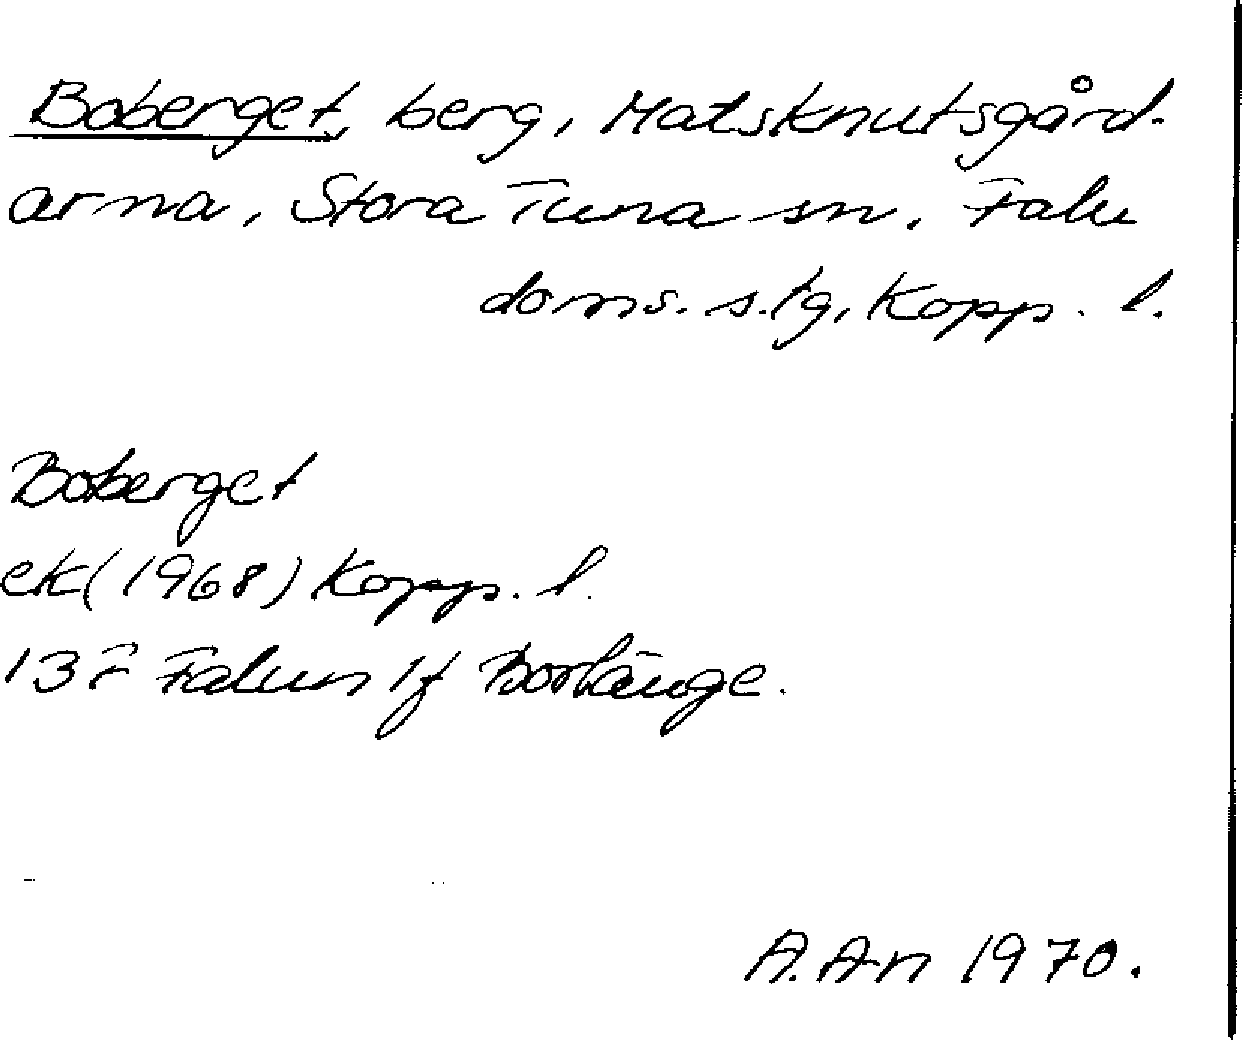 Boberget, berg, Matsknutsgård-
arna, Stora Tuna sn. Falu
doms. s. tg, Kopp. l.
Boberget
ek(1968) Kopp. l.
13F Falun 1f Borlänge.
A. An 1970.